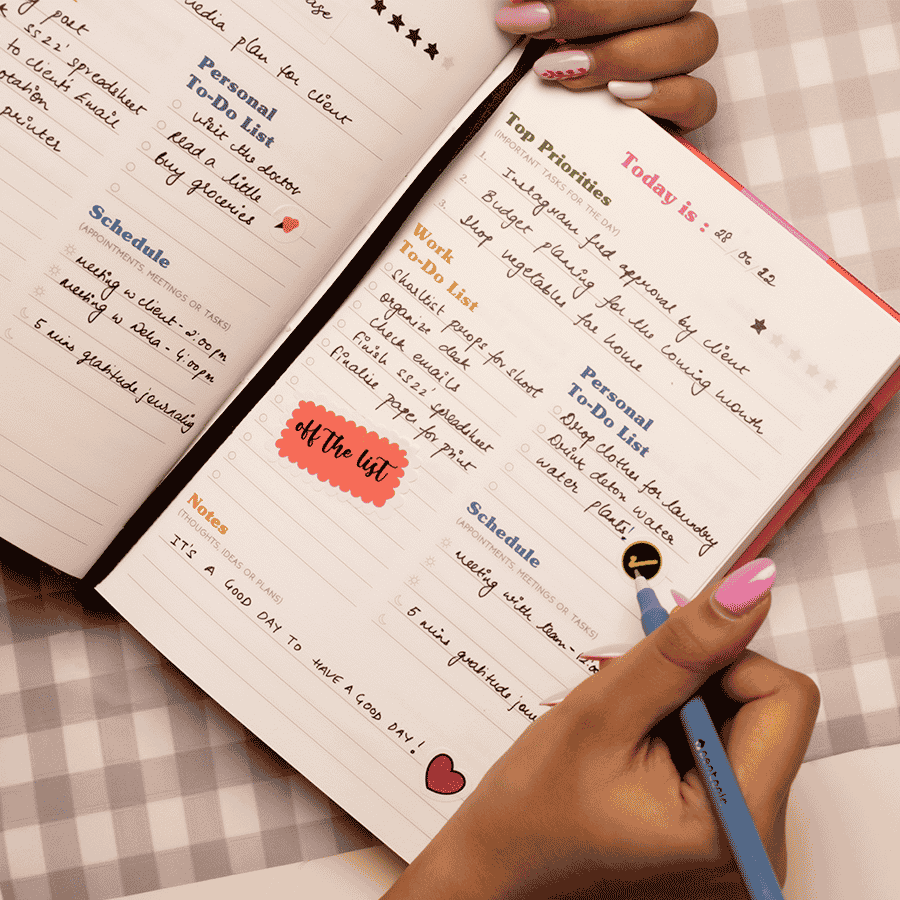 plan for client
SS22' spreadsheet
to client's Email
printer
Personal
To-Do List
visit the doctor
Read a little
buy groceries
Schedule
(APPOINTMENTS, MEETINGS OR TASKS)
meeting w client - 2:00pm
meeting w Neha - 4:00pm
5 mins gratitude journalig
Today is : 28/06/22
Top Priorities
(IMPORTANT TASKS FOR THE DAY)
1. Instagram feed approval by client
2. Budget planning for the coming month
3. Shop vegetables for home.
Work
To-Do List
Shortlist props for shoot
organize desk
check emails
Finish SS22' spredsheet
Finalise paper for print
off the list
Personal
To-Do List
Drop clothes for laundry
Drink detox water
water plants!
Notes
(THOUGHTS, IDEAS OR PLANS)
IT'S A GOOD DAY TO HAVE A GOOD DAY!
Schedule
(APPOINTMENTS, MEETINGS OR TASKS)
meeting with team -
5 mins gratitude